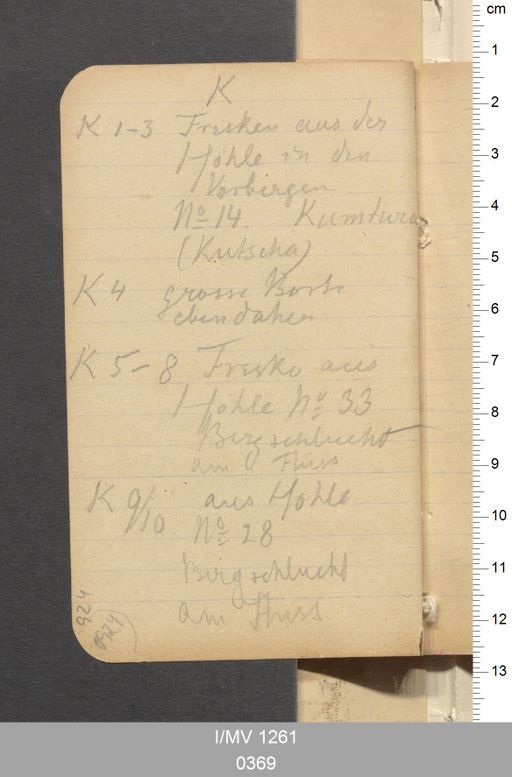 K
K 1-3 Fresken aus der
Höhle in den
Vorbergen
No 14. Kumtura
(Kutscha)
K 4 grosse Borte
ebendaher
K 5-8 Fresko aus
Höhle No 33
Bergschlucht
am Fluss
K 9/10 aus Höhle
No 28
Bergschlucht
am Fluss
924
I/MV 1261
0369
cm
1
2
3
4
5
6
7
8
9
10
11
12
13